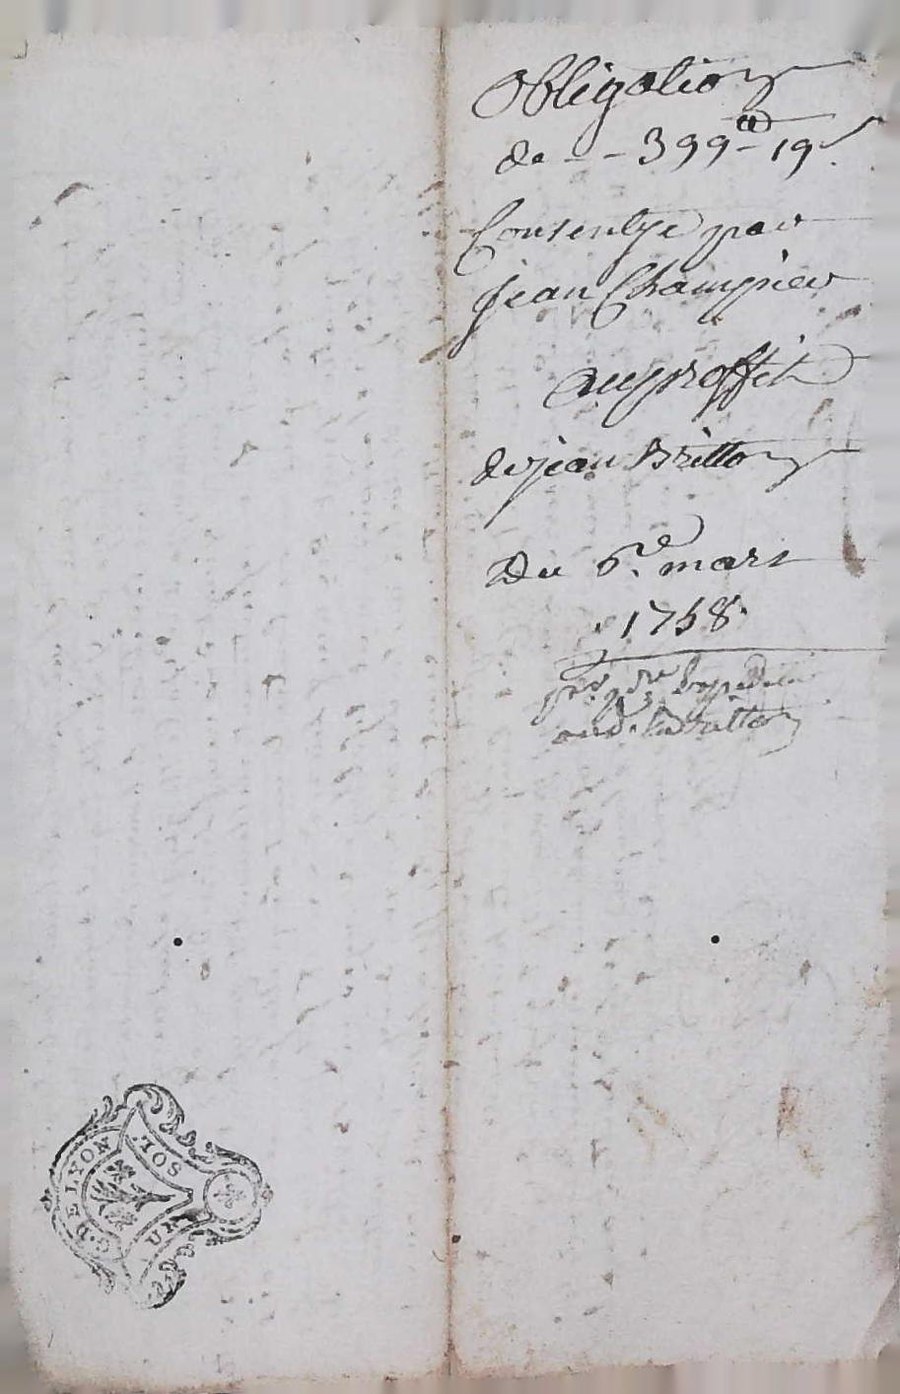 Obligation
de - - 399 tt - 19 s.
Consentye par
Jean Champier
au proffit
de jean Britton
Du 6.e mars
1758.
pr. Expedition
aud. Britton
G. DE LYON
UN SOL.